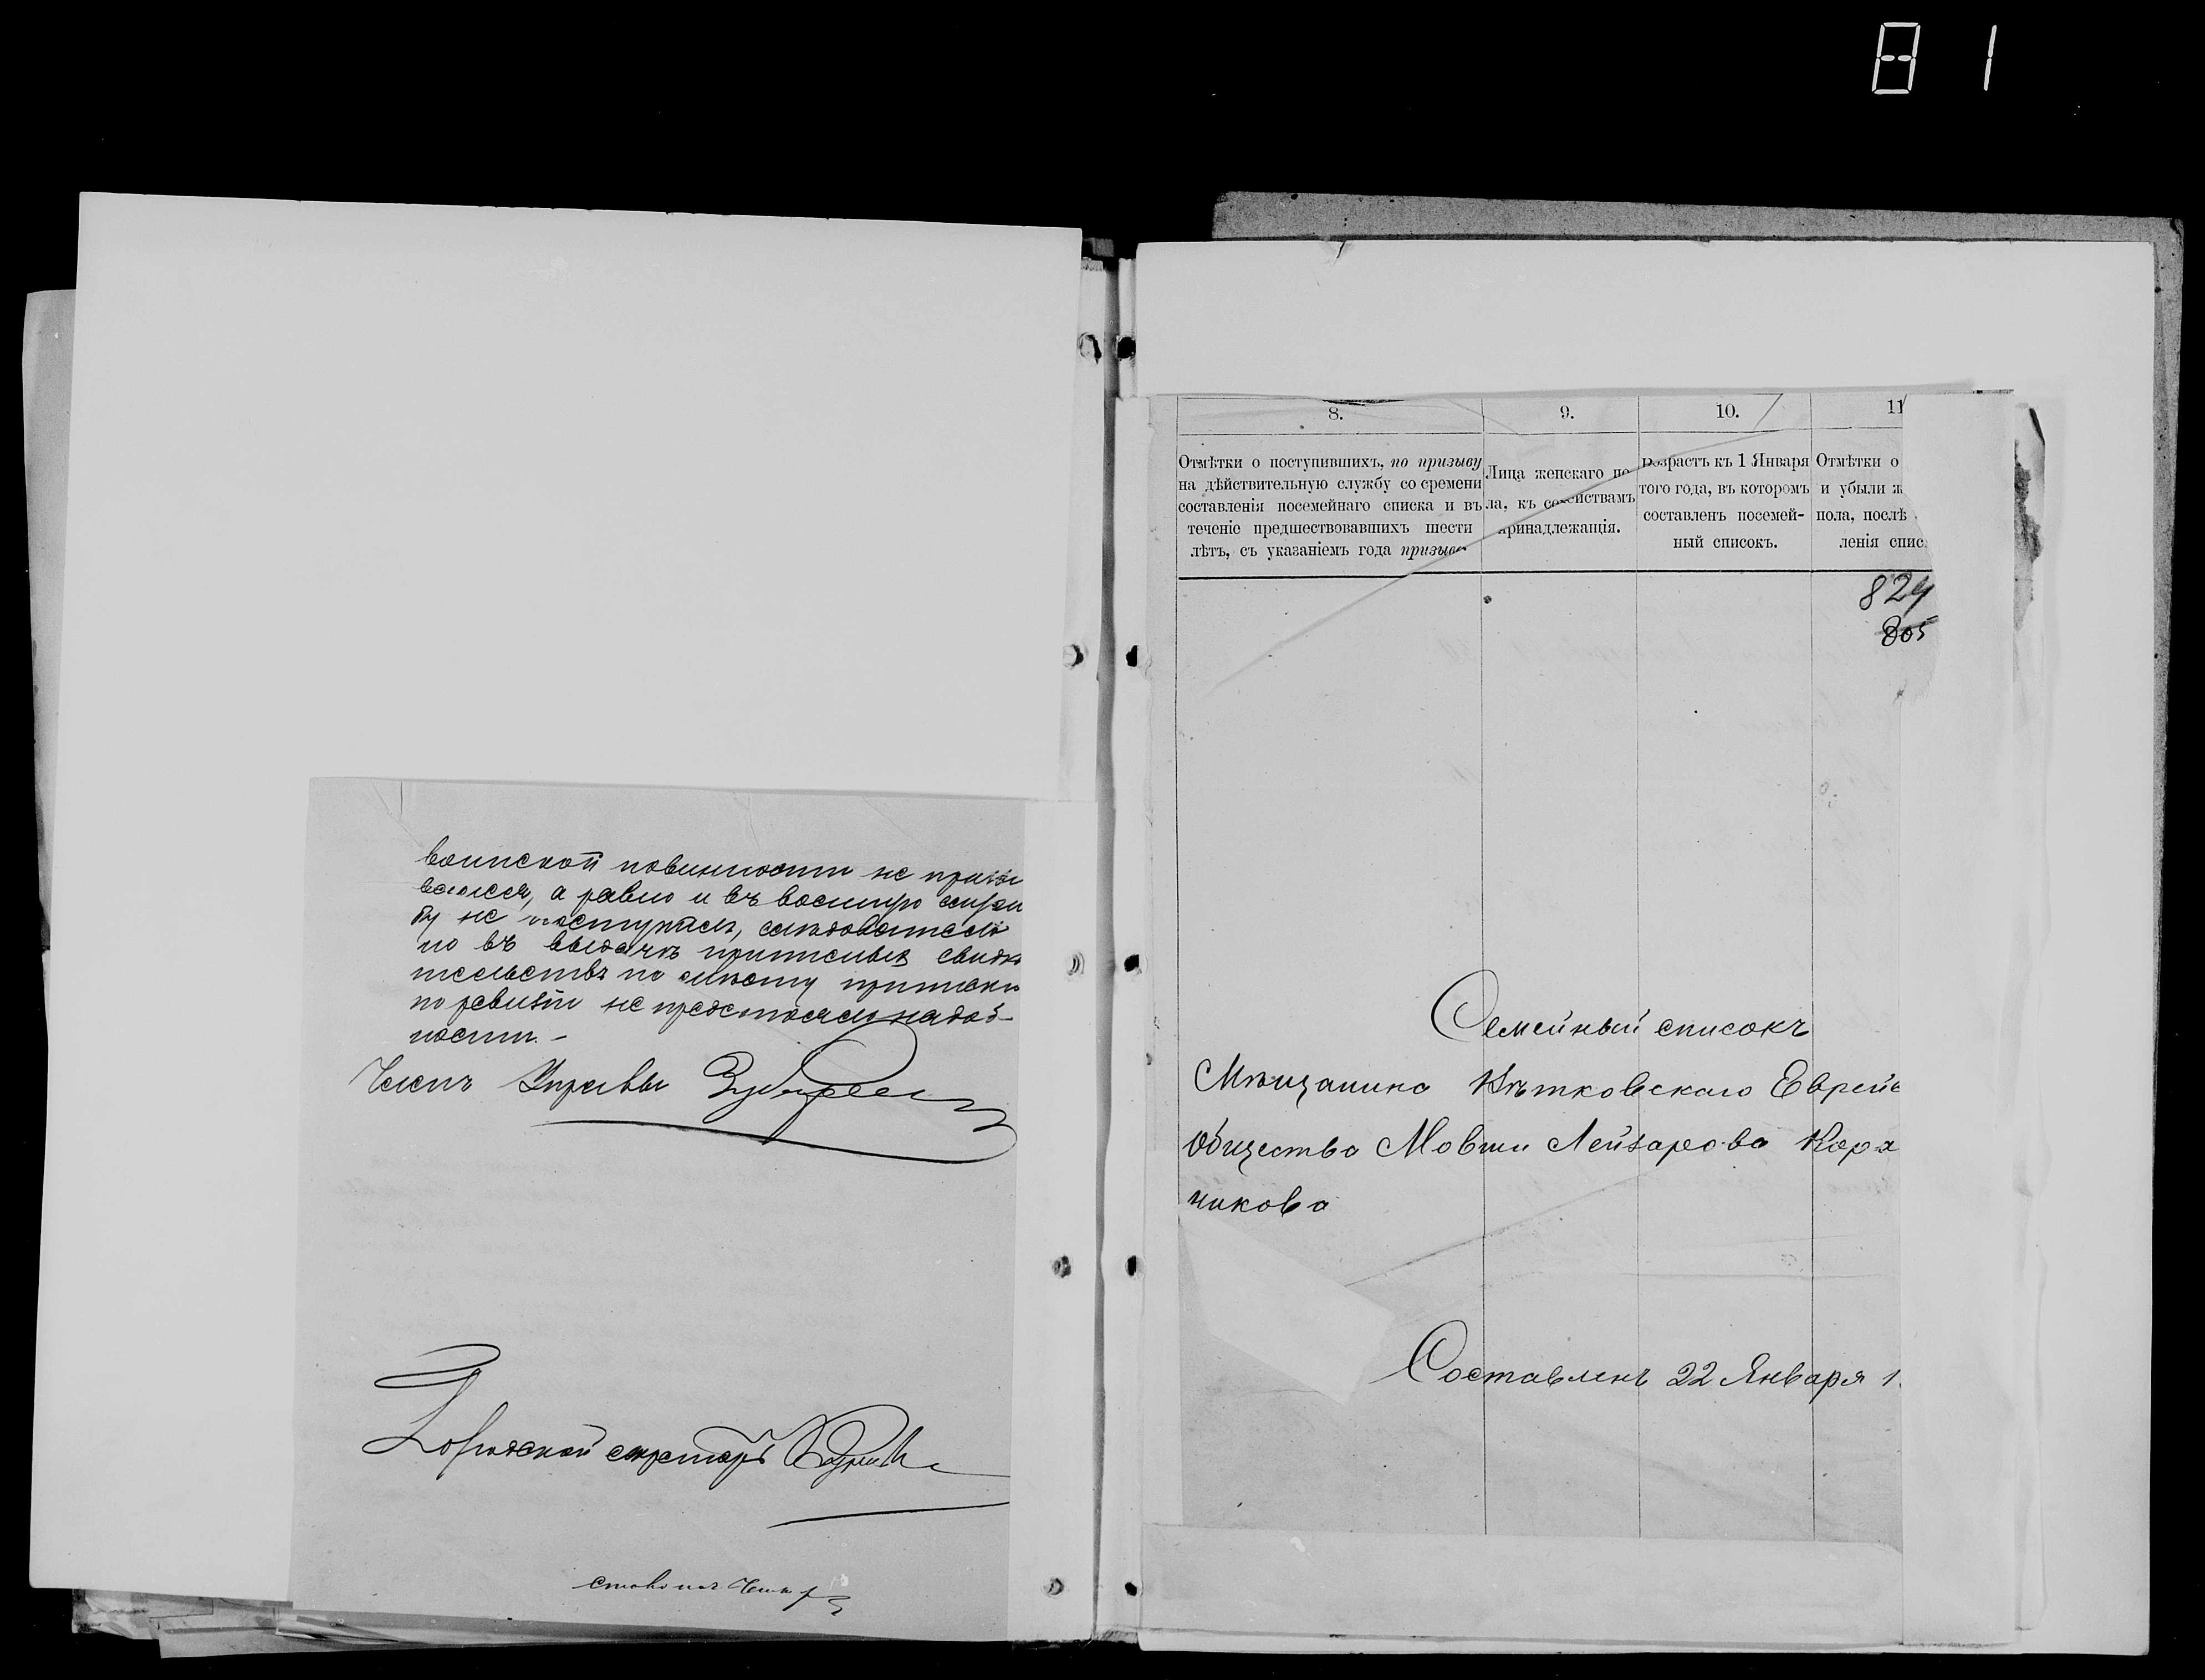 81
воинской повинности не призы
вался, а равно и въ военную служ
бу не поступалъ, следователь
но въ выдачѣ приписныхъ свидѣ
тельствъ по
по ревизіи не предстояло надоб-
ности. -
Членъ Управы
Городской секретарь
8. 9. 10. 11
Отмѣтки о поступившихъ, по призыву
на дѣйствительную службу со времени
составленія посемейнаго списка и въ
теченіе предшествовавшихъ шести
лѣтъ, съ указаніемъ года призыва
Лица женскаго по-
ла, къ семействамъ
принадлежащія.
Возрастъ къ 1 Января
того года, въ которомъ
составленъ посемей-
ный списокъ.
Отмѣтки о
и убыли ж
пола, послѣ
ленія спис
824
805
Семейный списокъ
Мѣщанина Вѣтковскаго Еврейс
Общества Мовши Лейзарова Кор
никова
Составленъ 22 Января 1